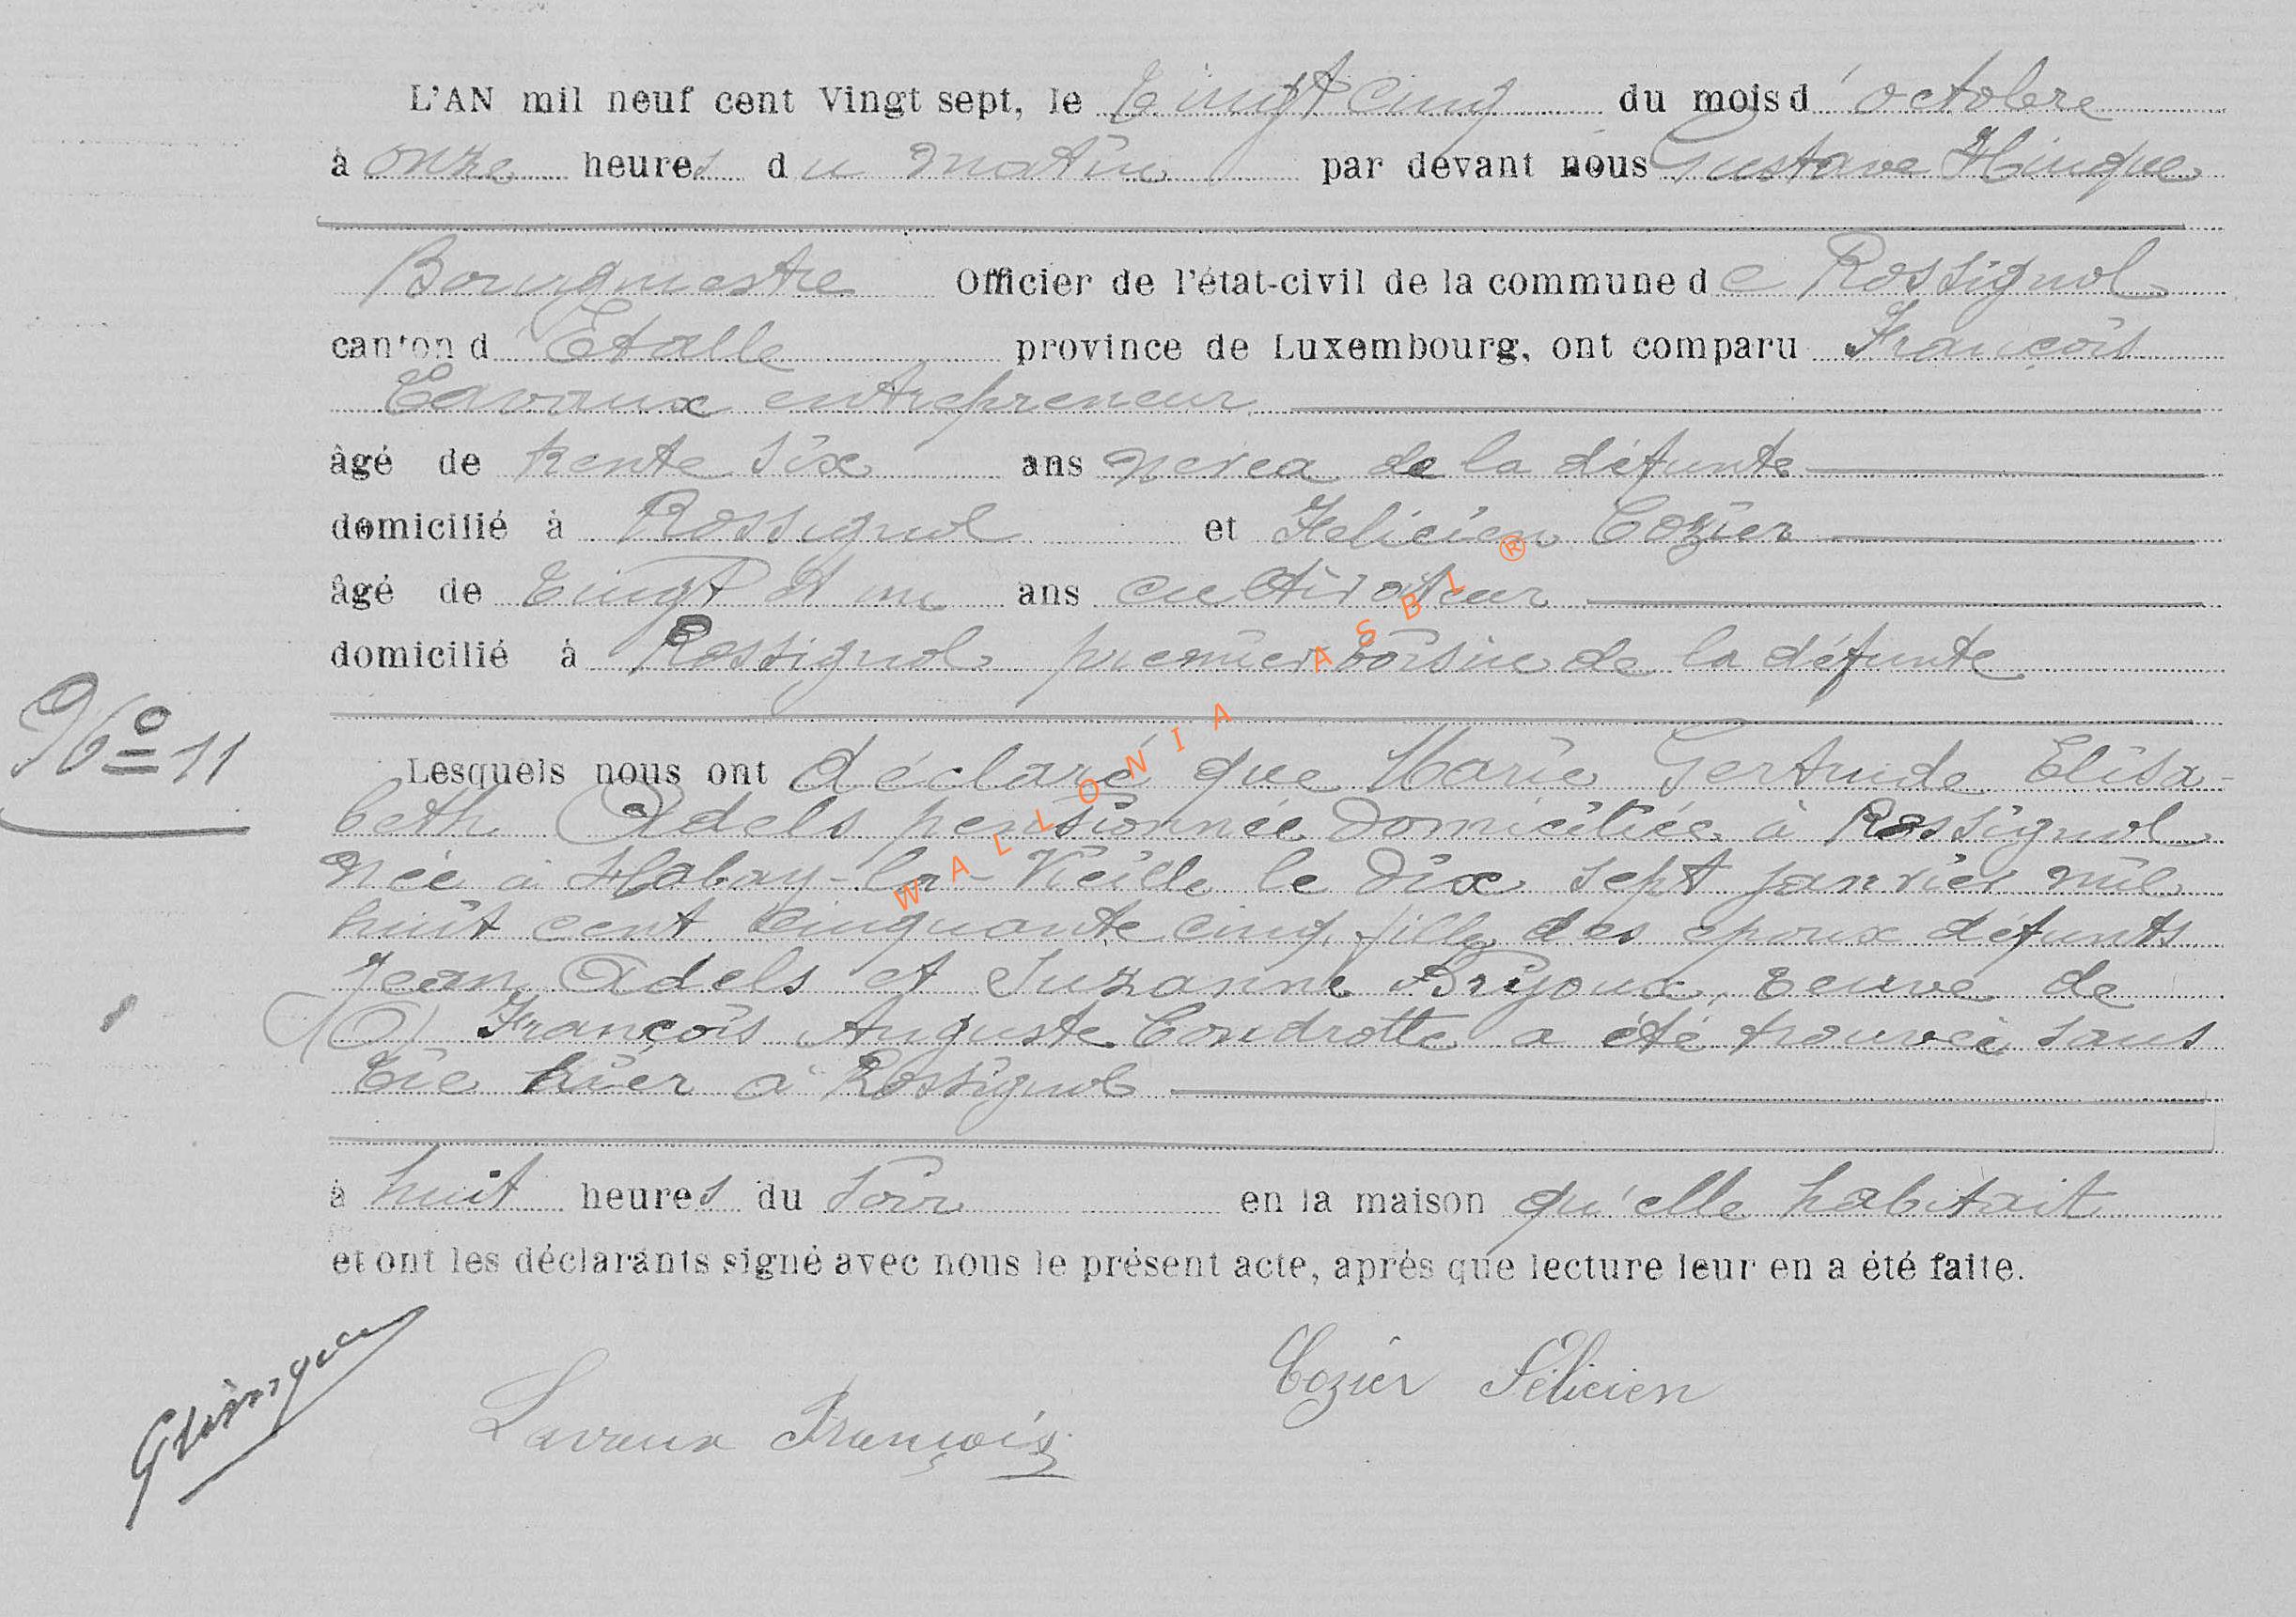 L'AN mil neuf cent Vingt sept, le vingt cinq du mois d'octobre
à onze heures du matin par devant nous Gustave Hinque
Bourgmestre Officier de l'état-civil de la commune de Rossignol
canton d'Etalle province de Luxembourg, ont comparu François
Lavaux entrepreneur
âgé de trente six ans neveu de la défunte
domicilié à Rossignol et Felicien Cozier
âgé de vingt et un ans cultivateur
domicilié à Rossignol premier voisin de la défunte
No 11
Lesquels nous ont déclaré que Marie Gertrude Elisa-
beth Adels pensionnée domiciliée à Rossignol
née à Habay-la-Vieille le dix sept janvier mil
huit cent cinquante cinq fille des époux défunts
Jean Adels et Suzanne veuve de
François Auguste Condrotte a été trouvée sans
vie hier à Rossignol
à huit heures du soir en la maison qu'elle habitait
et ont les déclarants signé avec nous le présent acte, après que lecture leur en a été faite.
GHinque
Lavaux François
Cozier Félicien
WALLONIA ASBL ®